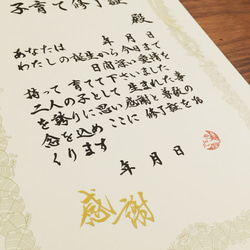 子育て修了証
殿
あなたは 年 月 日
わたしの誕生から今日まで
日間深い愛情を
持って育てて下さいました
二人の子として生まれた事
を誇りに思い感謝と尊敬の
念を込めここに修了証を
くります
年 月 日
感謝